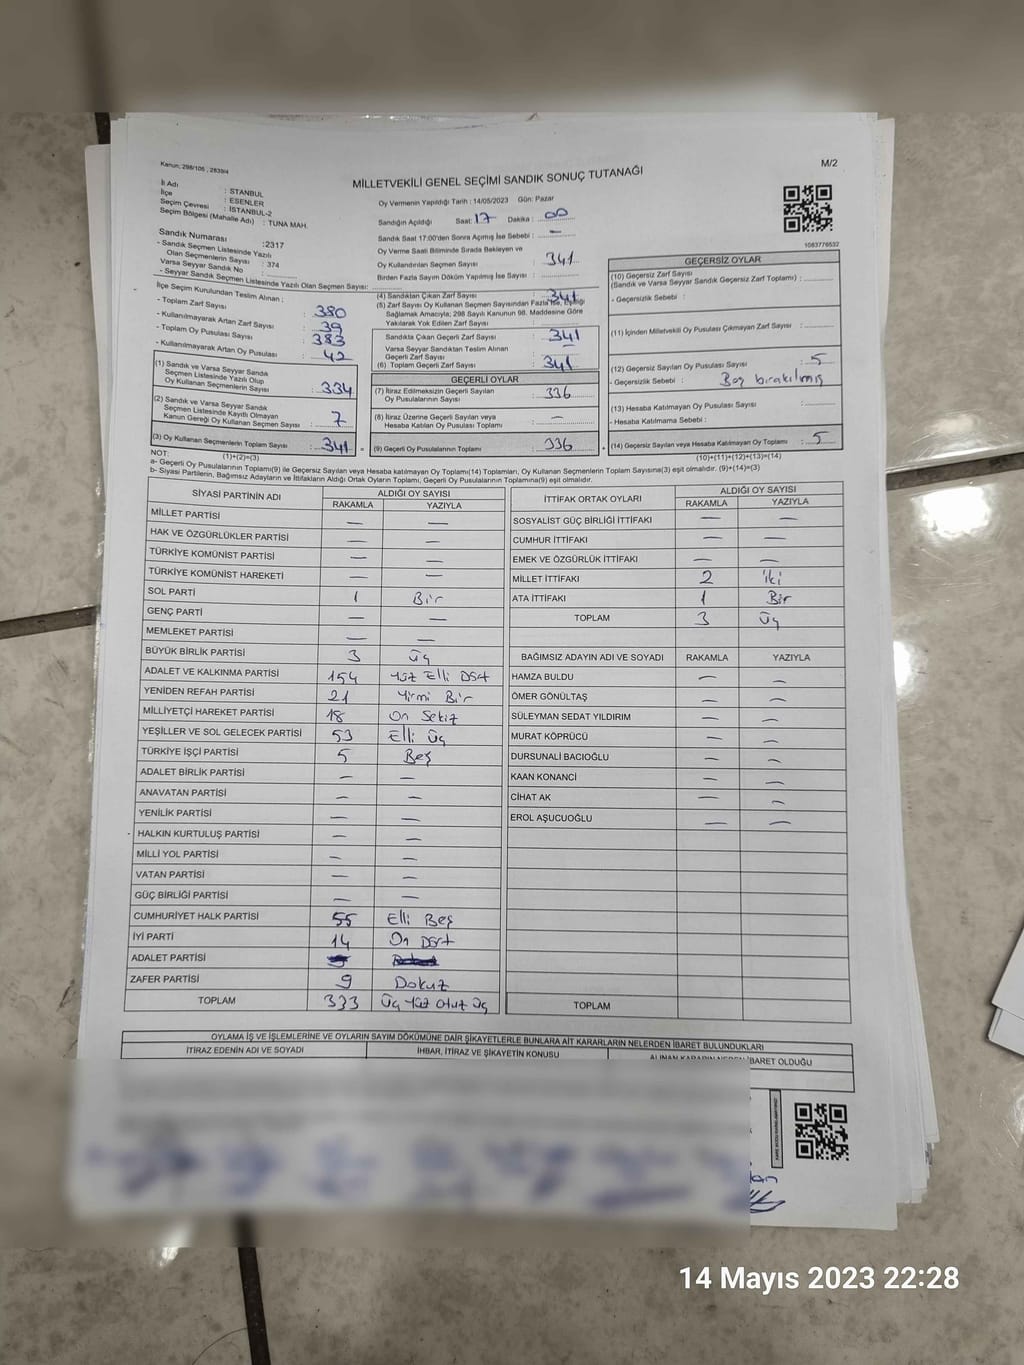 Kanun; 298/105 ; 2839/4
M/2
MİLLETVEKİLİ GENEL SEÇİMİ SANDIK SONUÇ TUTANAĞI
İl Adı : İSTANBUL
İlçe : ESENLER
Seçim Çevresi : İSTANBUL-2
Seçim Bölgesi (Mahalle Adı) : TUNA MAH.
Oy Vermenin Yapıldığı Tarih : 14/05/2023 Gün: Pazar
Sandığın Açıldığı Saat: 17 Dakika : 00
Sandık Saat 17:00'den Sonra Açımış İse Sebebi : —
Oy Verme Saati Bitiminde Sırada Bekleyen ve
Oy Kullandırılan Seçmen Sayısı : 341
Birden Fazla Sayım Döküm Yapılmış İse Sayısı :
1083776532
Sandık Numarası :2317
- Sandık Seçmen Listesinde Yazılı
Olan Seçmenlerin Sayısı : 374
Varsa Seyyar Sandık No :
- Seyyar Sandık Seçmen Listesinde Yazılı Olan Seçmen Sayısı:
İlçe Seçim Kurulundan Teslim Alınan ;
- Toplam Zarf Sayısı : 380
- Kullanılmayarak Artan Zarf Sayısı : 39
- Toplam Oy Pusulası Sayısı : 383
- Kullanılmayarak Artan Oy Pusulası : 42
(1) Sandık ve Varsa Seyyar Sandık
Seçmen Listesinde Yazılı Olup
Oy Kullanan Seçmenlerin Sayısı : 334
(2) Sandık ve Varsa Seyyar Sandık
Seçmen Listesinde Kayıtlı Olmayan
Kanun Gereği Oy Kullanan Seçmen Sayısı : 7
(3) Oy Kullanan Seçmenlerin Toplam Sayısı : 341
(1)+(2)=(3)
(4) Sandıktan Çıkan Zarf Sayısı : 341
(5) Zarf Sayısı Oy Kullanan Seçmen Sayısından Fazla İse, Eşitliği
Sağlamak Amacıyla; 298 Sayılı Kanunun 98. Maddesine Göre
Yakılarak Yok Edilen Zarf Sayısı :
Sandıkta Çıkan Geçerli Zarf Sayısı : 341
Varsa Seyyar Sandıktan Teslim Alınan
Geçerli Zarf Sayısı : —
(6) Toplam Geçerli Zarf Sayısı : 341
GEÇERLİ OYLAR
(7) İtiraz Edilmeksizin Geçerli Sayılan
Oy Pusulalarının Sayısı : 336
(8) İtiraz Üzerine Geçerli Sayılan veya
Hesaba Katılan Oy Pusulası Toplamı : —
(9) Geçerli Oy Pusulalarının Toplamı : 336
GEÇERSİZ OYLAR
(10) Geçersiz Zarf Sayısı
(Sandık ve Varsa Seyyar Sandık Geçersiz Zarf Toplamı) :
- Geçersizlik Sebebi :
(11) İçinden Milletvekili Oy Pusulası Çıkmayan Zarf Sayısı :
(12) Geçersiz Sayılan Oy Pusulası Sayısı : 5
- Geçersizlik Sebebi : Boş bırakılmış
(13) Hesaba Katılmayan Oy Pusulası Sayısı :
- Hesaba Katılmama Sebebi :
(14) Geçersiz Sayılan veya Hesaba Katılmayan Oy Toplamı : 5
(10)+(11)+(12)+(13)=(14)
NOT:
a- Geçerli Oy Pusulalarının Toplamı(9) ile Geçersiz Sayılan veya Hesaba katılmayan Oy Toplamı(14) Toplamları, Oy Kullanan Seçmenlerin Toplam Sayısına(3) eşit olmalıdır. (9)+(14)=(3)
b- Siyasi Partilerin, Bağımsız Adayların ve İttifakların Aldığı Ortak Oyların Toplamı, Geçerli Oy Pusulalarının Toplamına(9) eşit olmalıdır.
SİYASİ PARTİNİN ADI ALDIĞI OY SAYISI
RAKAMLA YAZIYLA
MİLLET PARTİSİ — —
HAK VE ÖZGÜRLÜKLER PARTİSİ — —
TÜRKİYE KOMÜNİST PARTİSİ — —
TÜRKİYE KOMÜNİST HAREKETİ — —
SOL PARTİ 1 Bir
GENÇ PARTİ — —
MEMLEKET PARTİSİ — —
BÜYÜK BİRLİK PARTİSİ 3 Üç
ADALET VE KALKINMA PARTİSİ 154 Yüz Elli Dört
YENİDEN REFAH PARTİSİ 21 Yirmi Bir
MİLLİYETÇİ HAREKET PARTİSİ 18 On Sekiz
YEŞİLLER VE SOL GELECEK PARTİSİ 53 Elli Üç
TÜRKİYE İŞÇİ PARTİSİ 5 Beş
ADALET BİRLİK PARTİSİ — —
ANAVATAN PARTİSİ — —
YENİLİK PARTİSİ — —
HALKIN KURTULUŞ PARTİSİ — —
MİLLİ YOL PARTİSİ — —
VATAN PARTİSİ — —
GÜÇ BİRLİĞİ PARTİSİ — —
CUMHURİYET HALK PARTİSİ 55 Elli Beş
İYİ PARTİ 14 On Dört
ADALET PARTİSİ
ZAFER PARTİSİ 9 Dokuz
TOPLAM 333 Üç Yüz Otuz Üç
İTTİFAK ORTAK OYLARI ALDIĞI OY SAYISI
RAKAMLA YAZIYLA
SOSYALİST GÜÇ BİRLİĞİ İTTİFAKI — —
CUMHUR İTTİFAKI — —
EMEK VE ÖZGÜRLÜK İTTİFAKI — —
MİLLET İTTİFAKI 2 İki
ATA İTTİFAKI 1 Bir
TOPLAM 3 Üç
BAĞIMSIZ ADAYIN ADI VE SOYADI RAKAMLA YAZIYLA
HAMZA BULDU — —
ÖMER GÖNÜLTAŞ — —
SÜLEYMAN SEDAT YILDIRIM — —
MURAT KÖPRÜCÜ — —
DURSUNALİ BACIOĞLU — —
KAAN KONANCİ — —
CİHAT AK — —
EROL AŞUCUOĞLU — —
TOPLAM
OYLAMA İŞ VE İŞLEMLERİNE VE OYLARIN SAYIM DÖKÜMÜNE DAİR ŞİKAYETLERLE BUNLARA AİT KARARLARIN NELERDEN İBARET BULUNDUKLARI
İTİRAZ EDENİN ADI VE SOYADI İHBAR, İTİRAZ VE ŞİKAYETİN KONUSU ALINAN KARARIN NEDEN İBARET OLDUĞU
14 Mayıs 2023 22:28